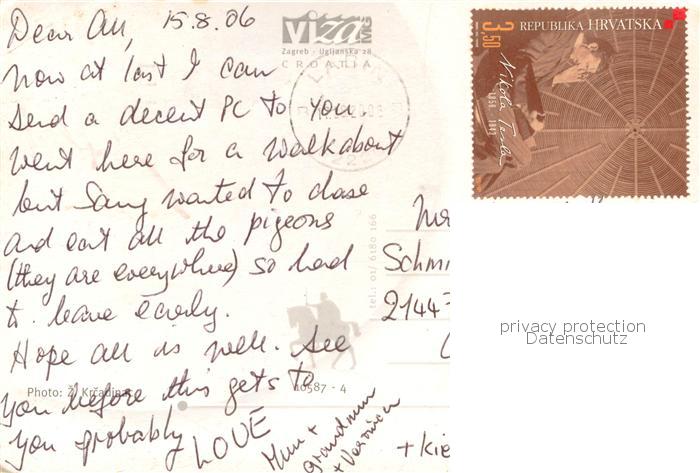 Dear All, 15.8.06
now at last I can
send a decent PC to you.
Went here for a walkabout
but Sany wanted to chase
and eat all the pigeons
(they are everywhere) so had
to leave early.
Hope all is well. See
you before this gets to
you probably
LOVE
Mum +
grandmum
+ Veronica
viza MG
Zagreb - Ugljanska 28
CROATIA
tel.: 01/ 6180 166
Photo: Ž. Krčadinac
10587 - 4
3,50
REPUBLIKA HRVATSKA
Nikola Tesla
Schmi
2144
+ Kie
privacy protection
Datenschutz